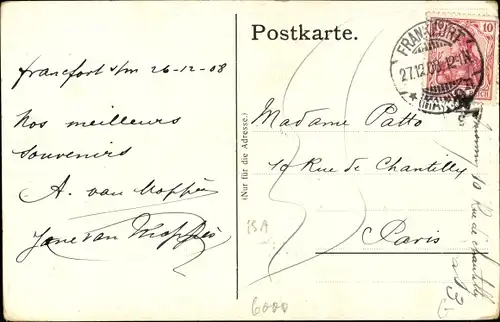 Postkarte.
FRANKFURT
27.12.08. 12-1N.
(MAIN)
10
Francfort s/m 26-12-08
Nos meilleurs
souvenirs
A. van
Jane van
(Nur für die Adresse.)
Madame Patto
10 Rue de Chantilly
Paris
10 Rue de Chantilly
Paris
ISA
6000